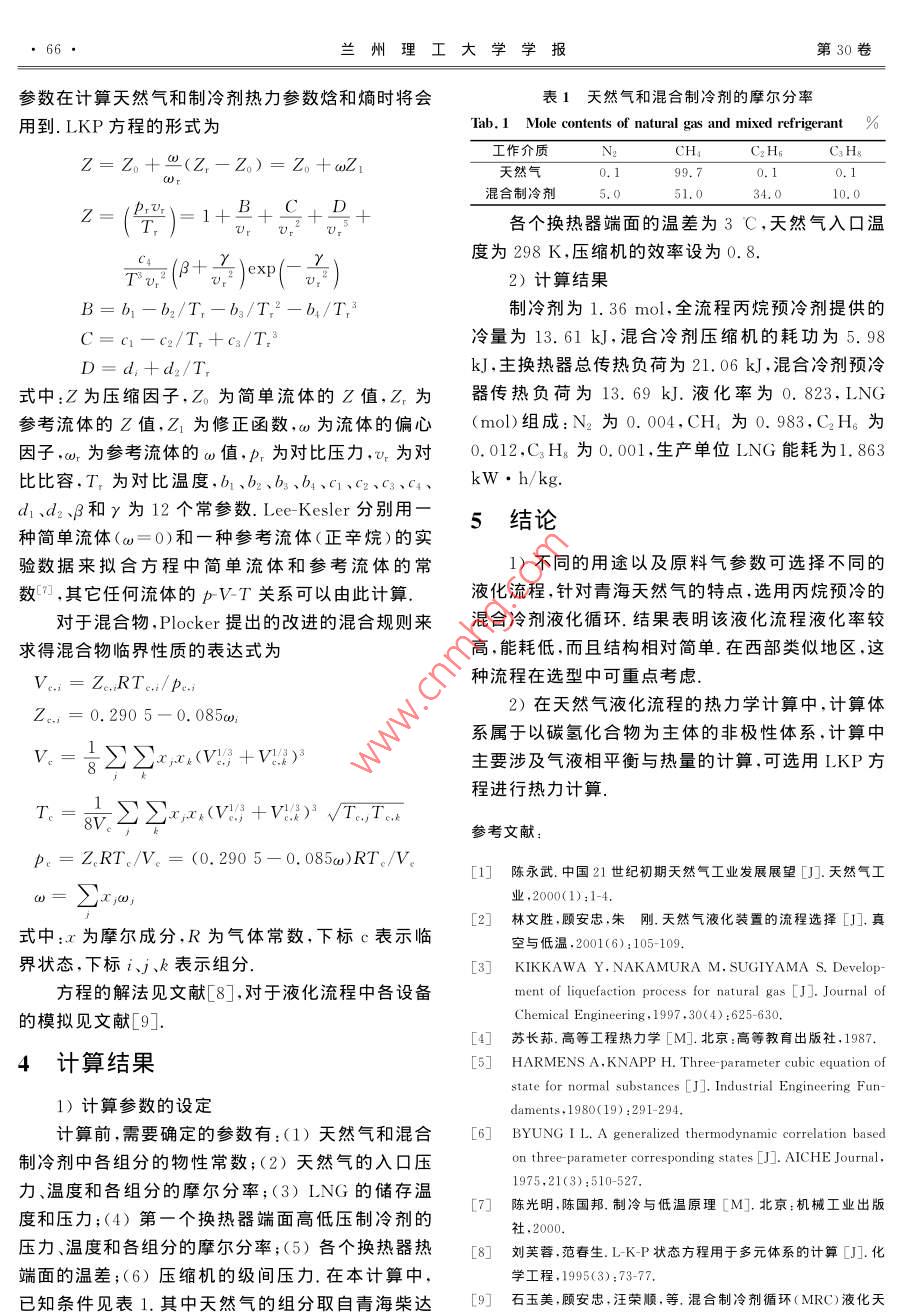 · 66 ·
兰 州 理 工 大 学 学 报
第 30 卷
参数在计算天然气和制冷剂热力参数焓和熵时将会
用到. LKP 方程的形式为
Z = Z₀ + ω/ωᵣ (Zᵣ − Z₀) = Z₀ + ωZ₁
Z = (pᵣvᵣ/Tᵣ) = 1 + B/vᵣ + C/vᵣ² + D/vᵣ⁵ +
c₄/T³vᵣ² (β + γ/vᵣ²) exp(− γ/vᵣ²)
B = b₁ − b₂/Tᵣ − b₃/Tᵣ² − b₄/Tᵣ³
C = c₁ − c₂/Tᵣ + c₃/Tᵣ³
D = dᵢ + d₂/Tᵣ
式中:Z 为压缩因子,Z₀ 为简单流体的 Z 值,Zᵣ 为
参考流体的 Z 值,Z₁ 为修正函数,ω 为流体的偏心
因子,ωᵣ 为参考流体的 ω 值,pᵣ 为对比压力,vᵣ 为对
比比容,Tᵣ 为对比温度,b₁、b₂、b₃、b₄、c₁、c₂、c₃、c₄、
d₁、d₂、β和 γ 为 12 个常参数. Lee-Kesler 分别用一
种简单流体(ω=0)和一种参考流体(正辛烷)的实
验数据来拟合方程中简单流体和参考流体的常
数[7],其它任何流体的 p-V-T 关系可以由此计算.
对于混合物,Plocker 提出的改进的混合规则来
求得混合物临界性质的表达式为
V_{c,i} = Z_{c,i}RT_{c,i}/p_{c,i}
Z_{c,i} = 0.290 5 − 0.085ωᵢ
V_c = 1/8 ∑_j ∑_k x_j x_k (V_{c,j}^{1/3} + V_{c,k}^{1/3})³
T_c = 1/8V_c ∑_j ∑_k x_j x_k (V_{c,j}^{1/3} + V_{c,k}^{1/3})³ √(T_{c,j}T_{c,k})
p_c = Z_cRT_c/V_c = (0.290 5 − 0.085ω)RT_c/V_c
ω = ∑_j x_jω_j
式中:x 为摩尔成分,R 为气体常数,下标 c 表示临
界状态,下标 i、j、k 表示组分.
方程的解法见文献[8],对于液化流程中各设备
的模拟见文献[9].
4 计算结果
1) 计算参数的设定
计算前,需要确定的参数有:(1) 天然气和混合
制冷剂中各组分的物性常数;(2) 天然气的入口压
力、温度和各组分的摩尔分率;(3) LNG 的储存温
度和压力;(4) 第一个换热器端面高低压制冷剂的
压力、温度和各组分的摩尔分率;(5) 各个换热器热
端面的温差;(6) 压缩机的级间压力. 在本计算中,
已知条件见表 1. 其中天然气的组分取自青海柴达
表 1 天然气和混合制冷剂的摩尔分率
Tab. 1 Mole contents of natural gas and mixed refrigerant %
工作介质 N₂ CH₄ C₂H₆ C₃H₈
天然气 0.1 99.7 0.1 0.1
混合制冷剂 5.0 51.0 34.0 10.0
各个换热器端面的温差为 3 ℃,天然气入口温
度为 298 K,压缩机的效率设为 0.8.
2) 计算结果
制冷剂为 1.36 mol,全流程丙烷预冷剂提供的
冷量为 13.61 kJ,混合冷剂压缩机的耗功为 5.98
kJ,主换热器总传热负荷为 21.06 kJ,混合冷剂预冷
器传热负荷为 13.69 kJ. 液化率为 0.823,LNG
(mol)组成:N₂ 为 0.004,CH₄ 为 0.983,C₂H₆ 为
0.012,C₃H₈ 为 0.001,生产单位 LNG 能耗为1.863
kW·h/kg.
5 结论
1) 不同的用途以及原料气参数可选择不同的
液化流程,针对青海天然气的特点,选用丙烷预冷的
混合冷剂液化循环. 结果表明该液化流程液化率较
高,能耗低,而且结构相对简单. 在西部类似地区,这
种流程在选型中可重点考虑.
2) 在天然气液化流程的热力学计算中,计算体
系属于以碳氢化合物为主体的非极性体系,计算中
主要涉及气液相平衡与热量的计算,可选用 LKP 方
程进行热力计算.
参考文献:
[1] 陈永武. 中国 21 世纪初期天然气工业发展展望 [J]. 天然气工
业,2000(1):1-4.
[2] 林文胜,顾安忠,朱 刚. 天然气液化装置的流程选择 [J]. 真
空与低温,2001(6):105-109.
[3] KIKKAWA Y,NAKAMURA M,SUGIYAMA S. Develop-
ment of liquefaction process for natural gas [J]. Journal of
Chemical Engineering,1997,30(4):625-630.
[4] 苏长荪. 高等工程热力学 [M]. 北京:高等教育出版社,1987.
[5] HARMENS A,KNAPP H. Three-parameter cubic equation of
state for normal substances [J]. Industrial Engineering Fun-
daments,1980(19):291-294.
[6] BYUNG I L. A generalized thermodynamic correlation based
on three-parameter corresponding states [J]. AICHE Journal,
1975,21(3):510-527.
[7] 陈光明,陈国邦. 制冷与低温原理 [M]. 北京:机械工业出版
社,2000.
[8] 刘芙蓉,范春生. L-K-P 状态方程用于多元体系的计算 [J]. 化
学工程,1995(3):73-77.
[9] 石玉美,顾安忠,汪荣顺,等. 混合制冷剂循环(MRC)液化天
www.cnmhg.com